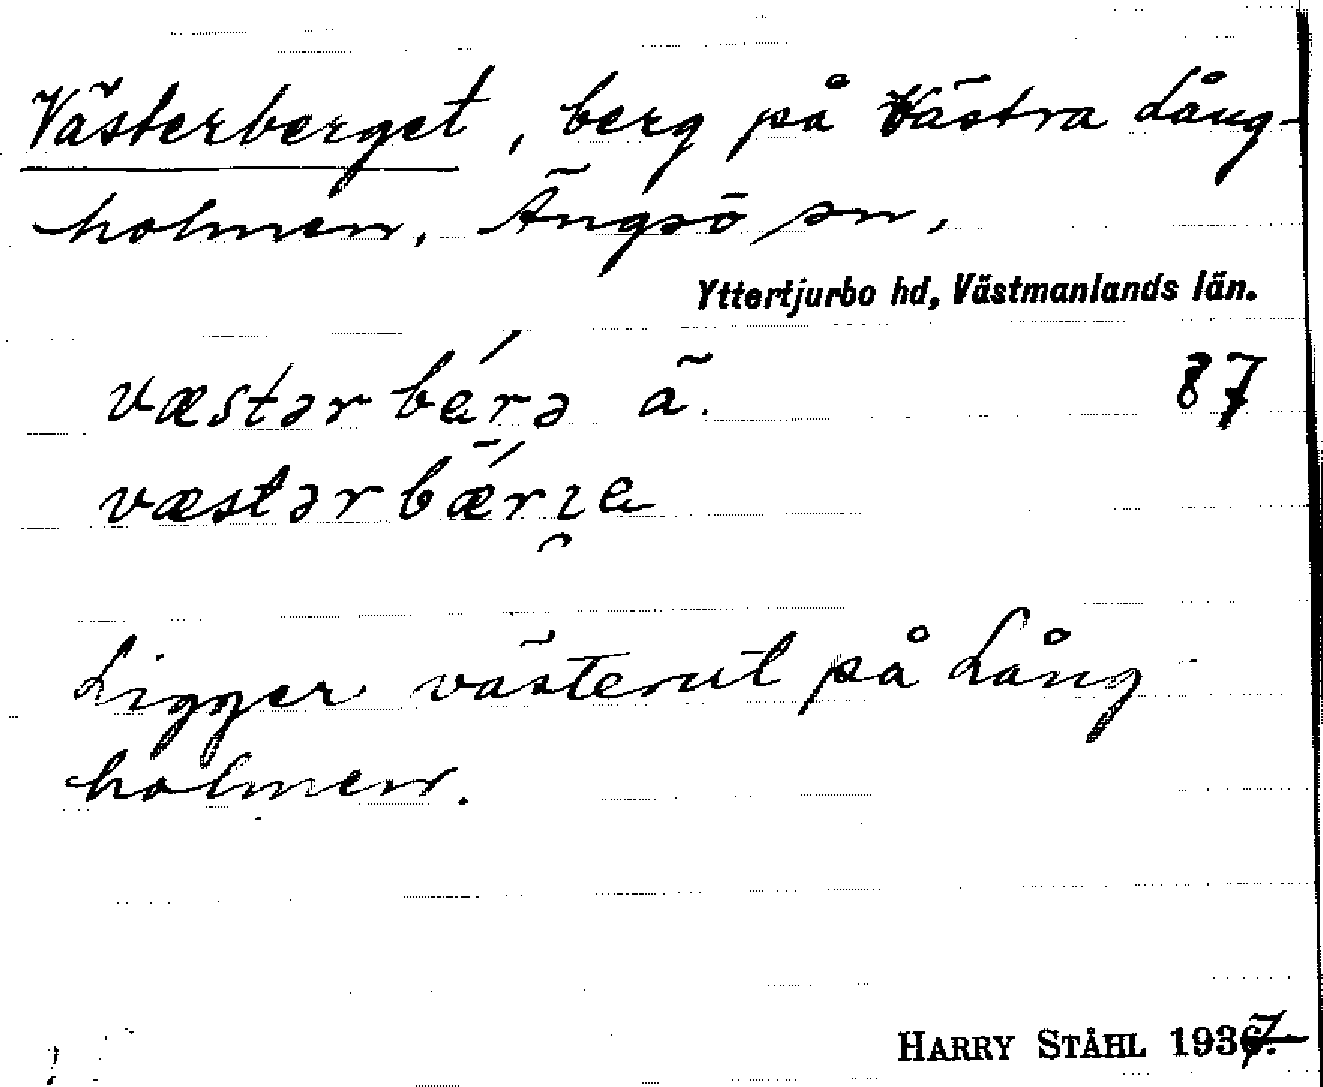 Västerberget, berg på Västra Lång-
holmen. Ängsö sn,
Yttertjurbo hd, Västmanlands län.
væstər bérə ä. 87
væstərbǽrıe
Ligger västerut på Lång
holmen.
HARRY STÅHL 1937.